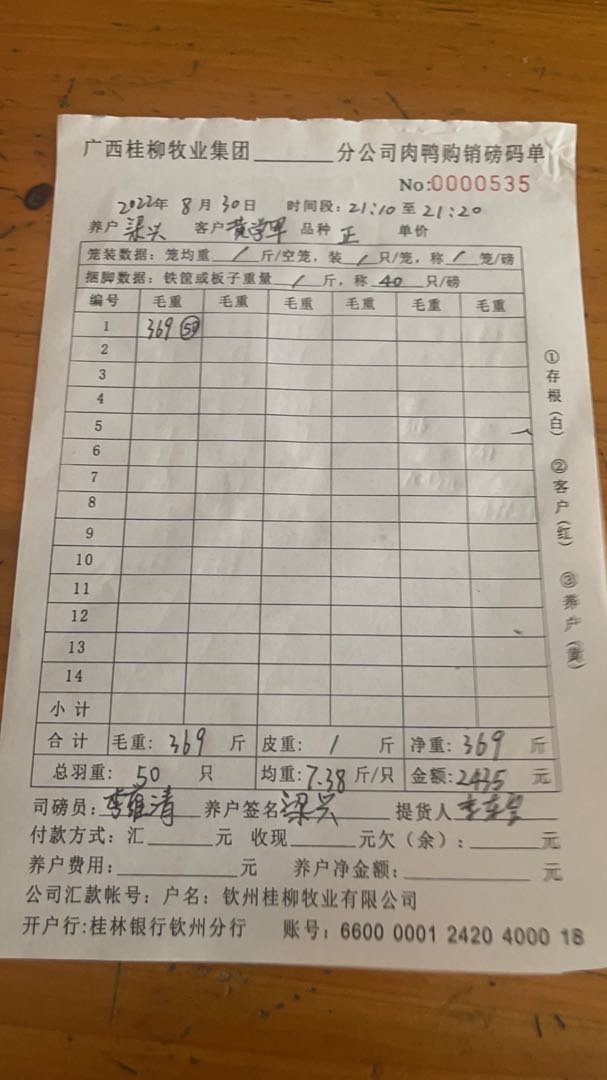 广西桂柳牧业集团________分公司肉鸭购销磅码单
No:0000535
2022年 8月30日 时间段: 21:10 至 21:20
养户 梁兴 客户 黄学军 品种 正 单价
笼装数据: 笼均重 / 斤/空笼, 装 / 只/笼, 称 / 笼/磅
捆脚数据: 铁筐或板子重量 / 斤, 称 40 只/磅
编号 毛重 毛重 毛重 毛重 毛重 毛重
1 369 50
2
3
4
5
6
7
8
9
10
11
12
13
14
小计
合计 毛重: 369 斤 皮重: / 斤 净重: 369 斤
总羽重: 50 只 均重: 7.38 斤/只 金额: 2435 元
司磅员: 李维清 养户签名 梁兴 提货人
付款方式: 汇________元 收现________元欠(余): ________元
养户费用: ________元 养户净金额: ________元
公司汇款帐号: 户名: 钦州桂柳牧业有限公司
开户行:桂林银行钦州分行 账号: 6600 0001 2420 4000 18
①存根(白) ②客户(红) ③养户(黄)